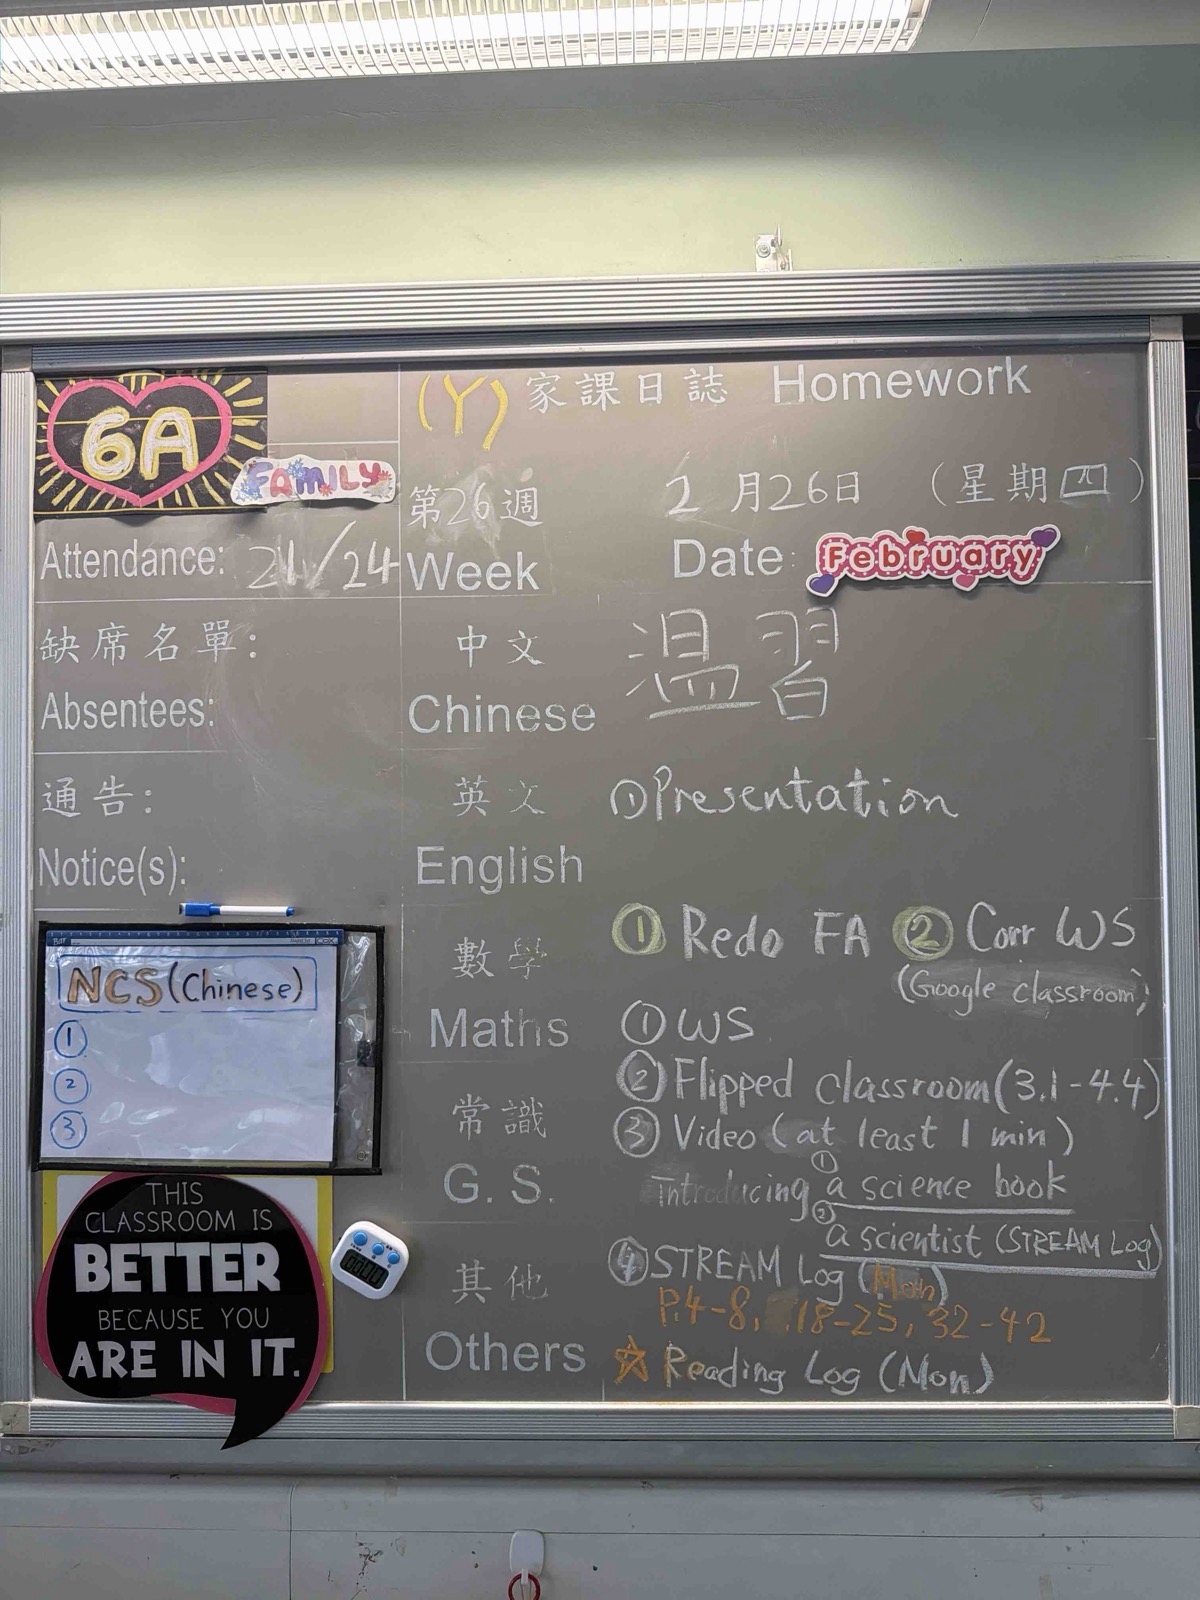 6A
FAMILY
(Y) 家課日誌 Homework
第26週
2月26日 (星期四)
Week
Date: February
Attendance: 21/24
缺席名單:
Absentees:
通告:
Notice(s):
中文
Chinese
温習
英文
English
①Presentation
數學
Maths
① Redo FA ② Corr WS
(Google classroom)
常識
G. S.
① WS
② Flipped classroom (3.1-4.4)
③ Video (at least 1 min)
introducing ① a science book
② a scientist (STREAM Log)
其他
Others
④ STREAM Log (Mon)
P.4-8, 18-25, 32-42
☆ Reading Log (Mon)
NCS (Chinese)
①
②
③
THIS
CLASSROOM IS
BETTER
BECAUSE YOU
ARE IN IT.